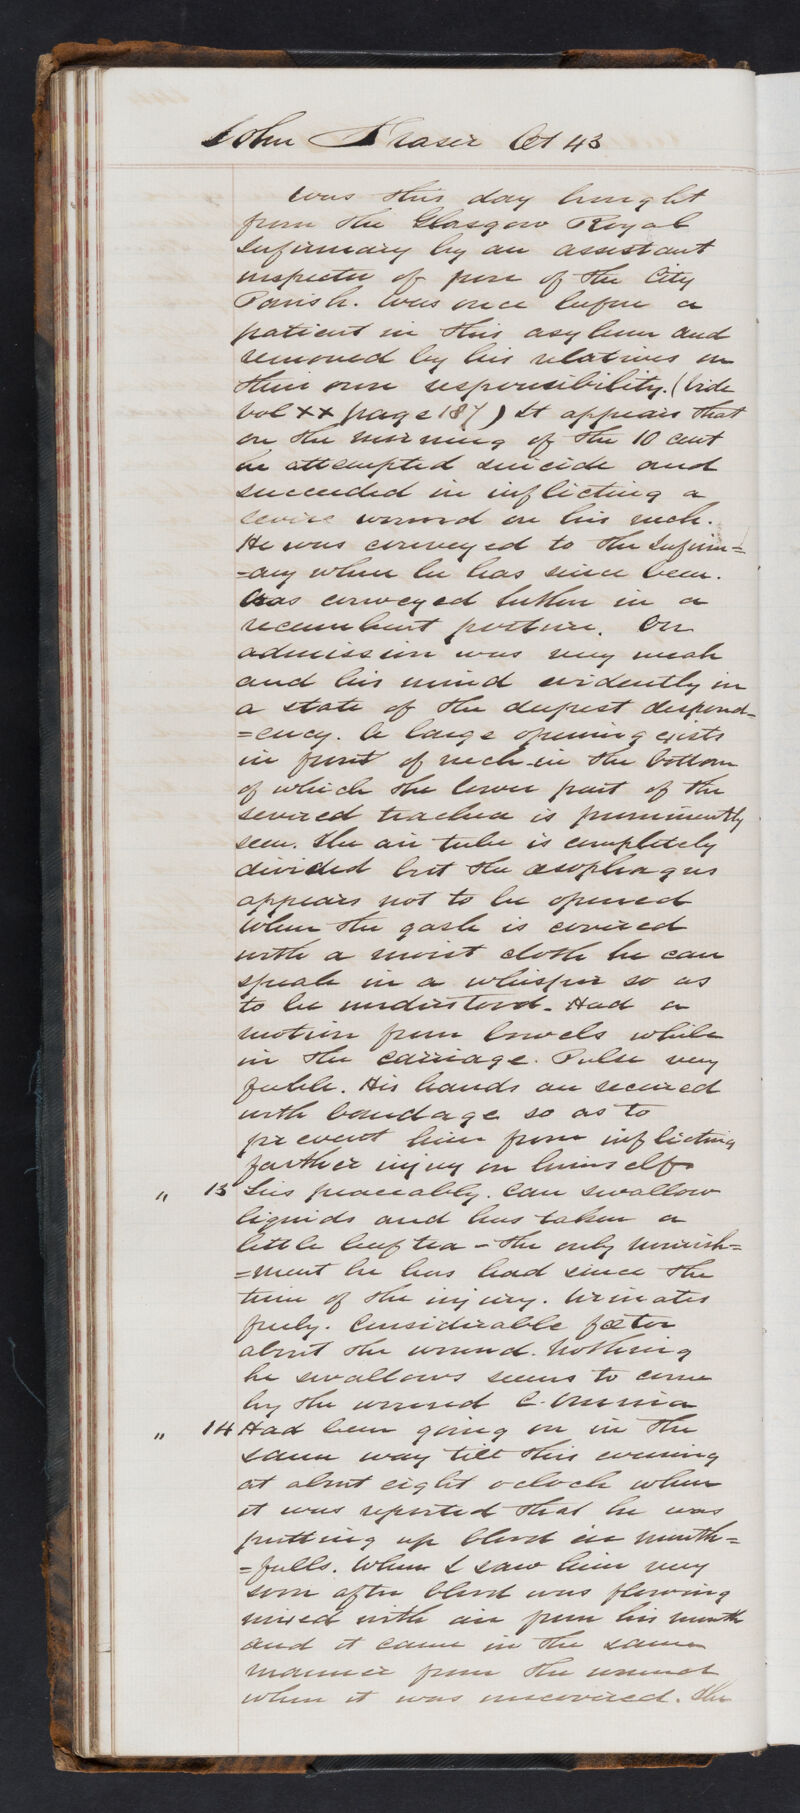 John Fraser Æt 43
Was this day brought
from the Glasgow Royal
Infirmary by an assistant
inspector of poor of the City
Parish. Was once before a
patient in this asylum and
removed by his relatives on
their own responsibility. (Vide
Vol XX page 187) It appears that
on the morning of the 10 curt
he attempted suicide and
succeeded in inflicting a
severe wound on his neck.
He was conveyed to the Infirm=
=ary where he has since been.
Was conveyed hither in a
recumbent posture. On
admission was very weak
and his mind evidently in
a state of the deepest despond-
=ency. A large opening exists
in front of neck in the bottom
of which the lower part of the
severed trachea is prominently
seen. The air tube is completely
divided but the œsophagus
appears not to be opened
When the gash is covered
with a moist cloth he can
speak in a whisper so as
to be understood. Had a
motion from bowels while
in the carriage. Pulse very
feeble. His hands are secured
with bandage so as to
prevent him from inflicting
farther injury on himself
" 13 Lies peaceably. Can swallow
liquids and has taken a
little beef tea - the only nourish=
=ment he has had since the
time of the injury. Urinates
freely. Considerable fœtor
about the wound. Nothing
he swallows seems to come
by the wound C. Omnia
" 14 Had been going on in the
same way till this evening
at about eight oclock when
it was reported that he was
putting up blood in mouth=
=fulls. When I saw him very
soon after blood was flowing
mixed with air from his mouth
and it came in the same
manner from the wound
when it was uncovered. The